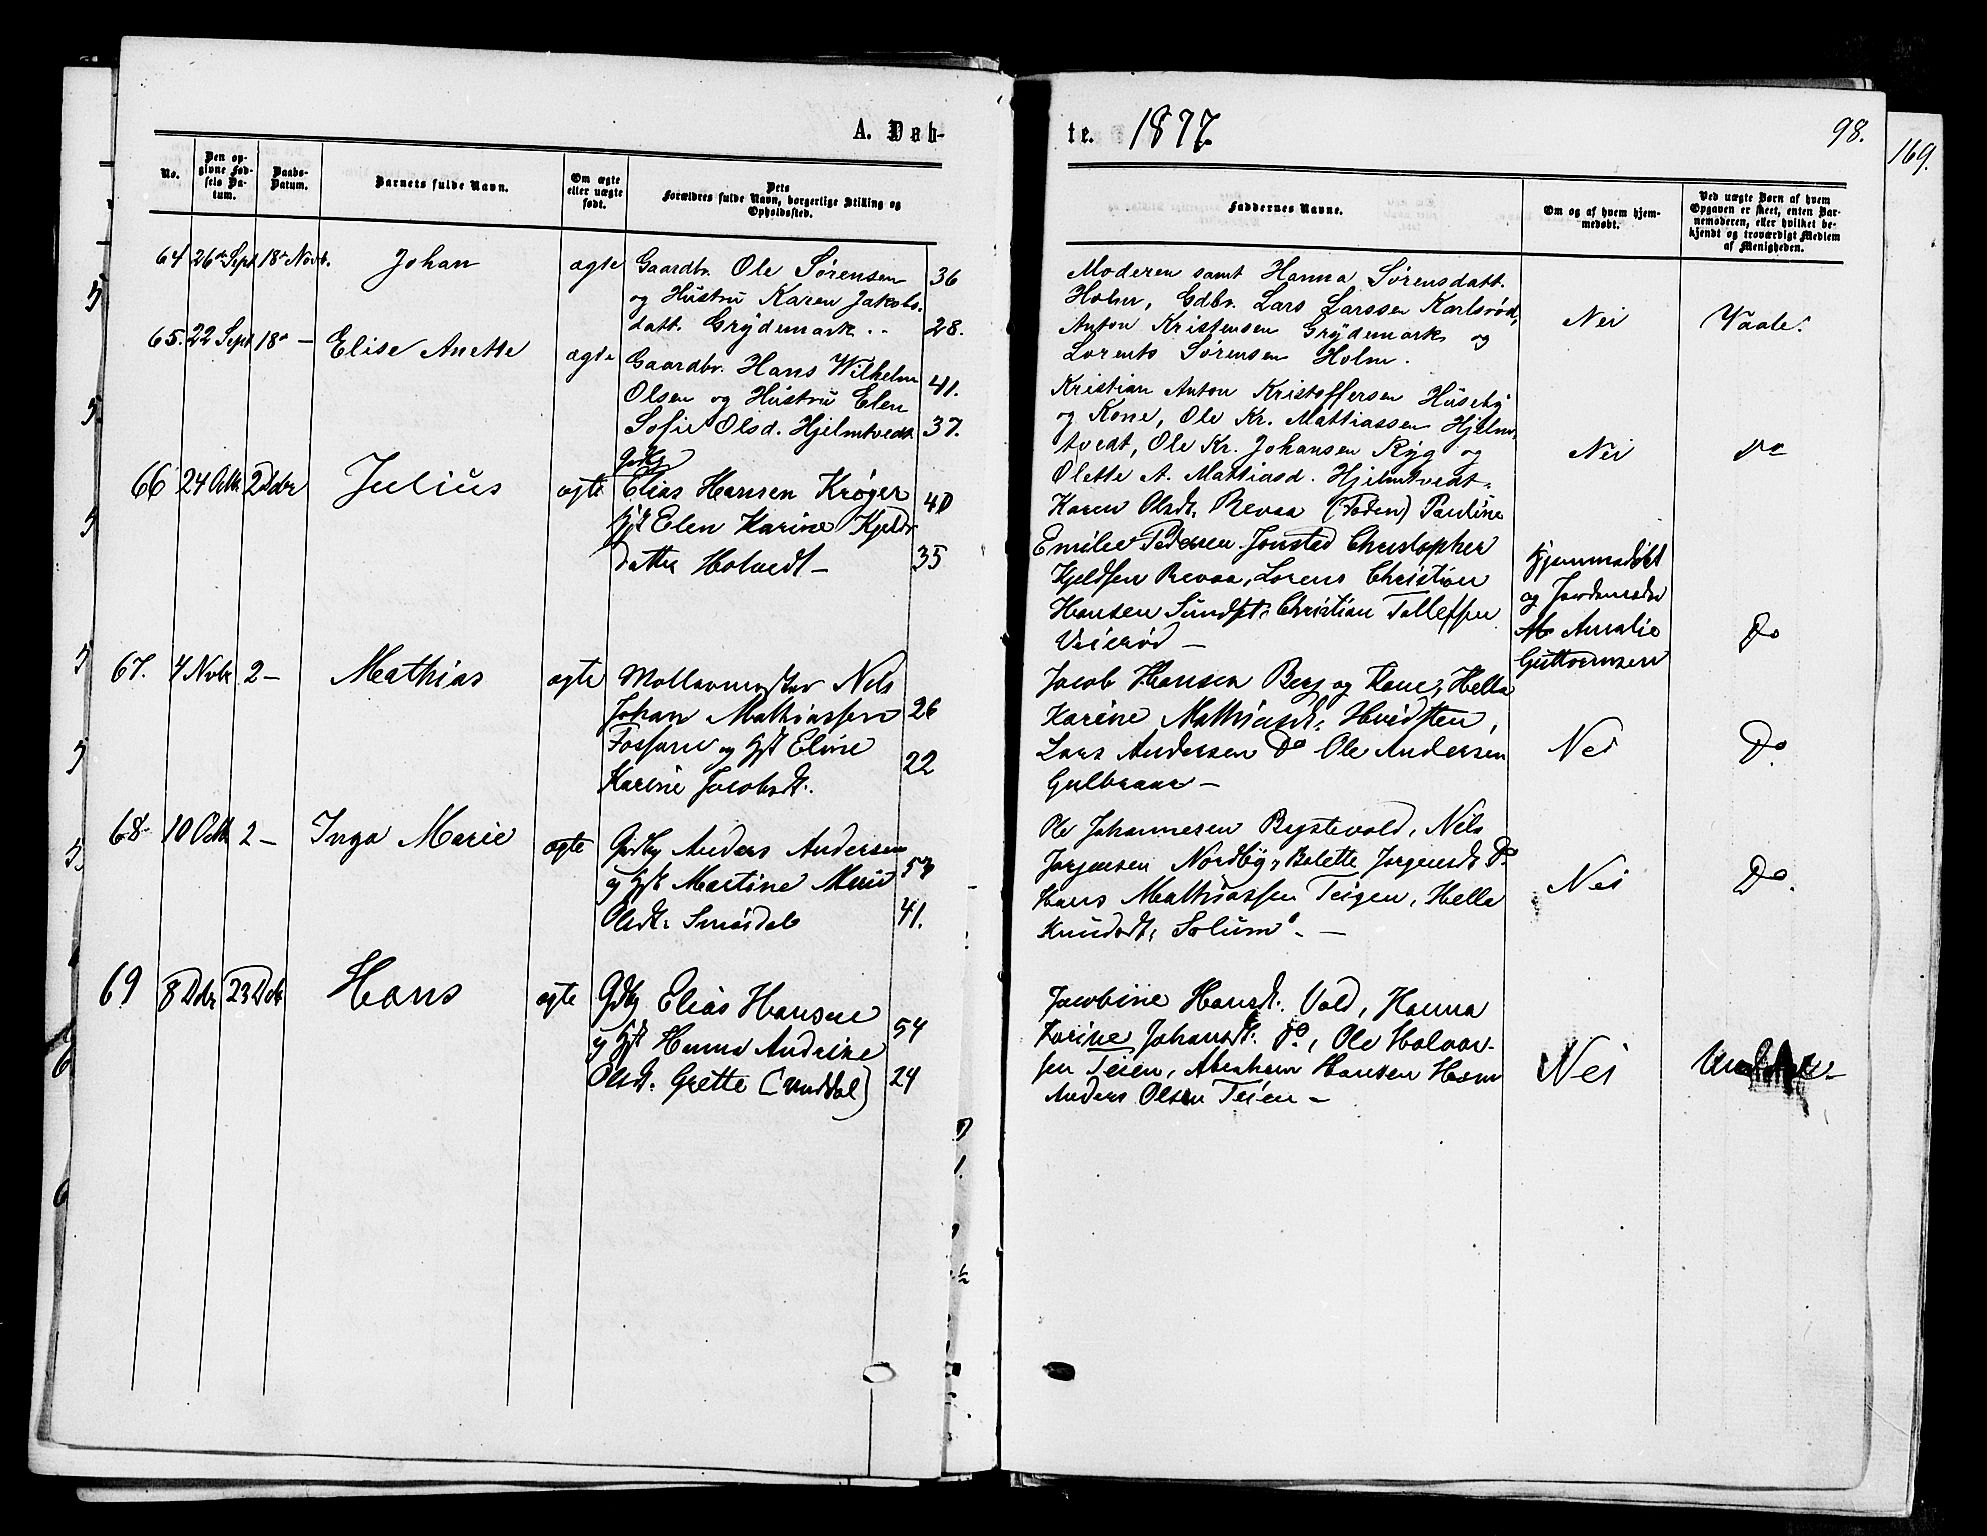 A. Døb-
te. 1877.
98.
169.
No.
Den op-
givne Fød-
sels Da-
tum.
Daabs-
Datum.
Barnets fulde Navn.
Om ægte
eller uægte
født.
Dets
Forældres fulde Navn, borgerlige Stilling og
Opholdssted.
Faddernes Navne.
Om og af hvem hjem-
medøbt.
Ved uægte Børn af hvem
Opgaven er skeet, enten Bar-
nemoderen, eller hvilket be-
kjendt og troværdigt Medlem
af Menigheden.
64 26de Sept 18de Novb. Johan ægte
Gaardbr. Ole Sørensen 36
og Hustru Karen Jakobs-
datt. Grydemark .. 28.
Moderen samt Hanna Sørensdatt.
Holm, Gdbr. Lars Larssen Karlsrød,
Anton Kristensen Grydemark og
Lorents Sørensen Holm.
Nei Vaale.
65. 22 Sept 18de — Elise Anette ægte
Gaardbr. Hans Wilhelm 41.
Olsen og Hustru Elen
Sofie Olsd. Hjelmtvedt 37.
Kristian Anton Kristoffersen Huseby
og Kone, Ole Kr. Mattiassen Hjelm-
tvedt, Ole Kr. Johansen Ryg og
Olette A. Mattiasd. Hjelmtvedt.
Nei do
66 24 Octb 2 Dcbr Julius ægte
Elias Hansen Krøger 40
Hst Elen Karine Kjelds
datter Holvedt — 35
Karen Olsdt. Revaa (Faden) Pauline
Emilie Pedersen Jonstad Christopher
Kjeldsen Revaa, Lorens Christian
Hansen Sundset, Christian Tollefsen
Veierød —
Hjemmedøbt
og Jordemoder
Amalie
Guttormsen
Do
67. 4 Nvbr 2 — Mathias ægte
Møllermester Nils
Johan Mathiassen 26
Fossane og Hst Eline
Karine Jacobsdt. 22
Jacob Hansen Berg og Kone, Hella
Karine Mathiasdt. Hvidsten,
Lars Andersen Do Ole Andersen
Gulbraar —
Nei Do.
68. 10 Octb 2 — Inga Marie ægte
Gdbr Anders Andersen
og Hst Martine Marie
Olsdt. Smørdal 41.
Ole Johannesen Bystevold, Nils
Jørgensen Nordby, Bolette Jørgensdt Do
Hans Mathiassen Teigen, Hella
Knudsdt, Solum. —
Nei Do.
69 8 Dcbr 23 Dcb Hans ægte
Gdbr Elias Hansen 54
og Hst Hanna Andrine
Olsdt. Grette (Unddal) 24
Jacobine Hansdt. Vold, Hanna
Karine Johansdt. Do, Ole Halvor-
sen Teien, Abraham Hansen Hom
Anders Olsen Teien —
Nei